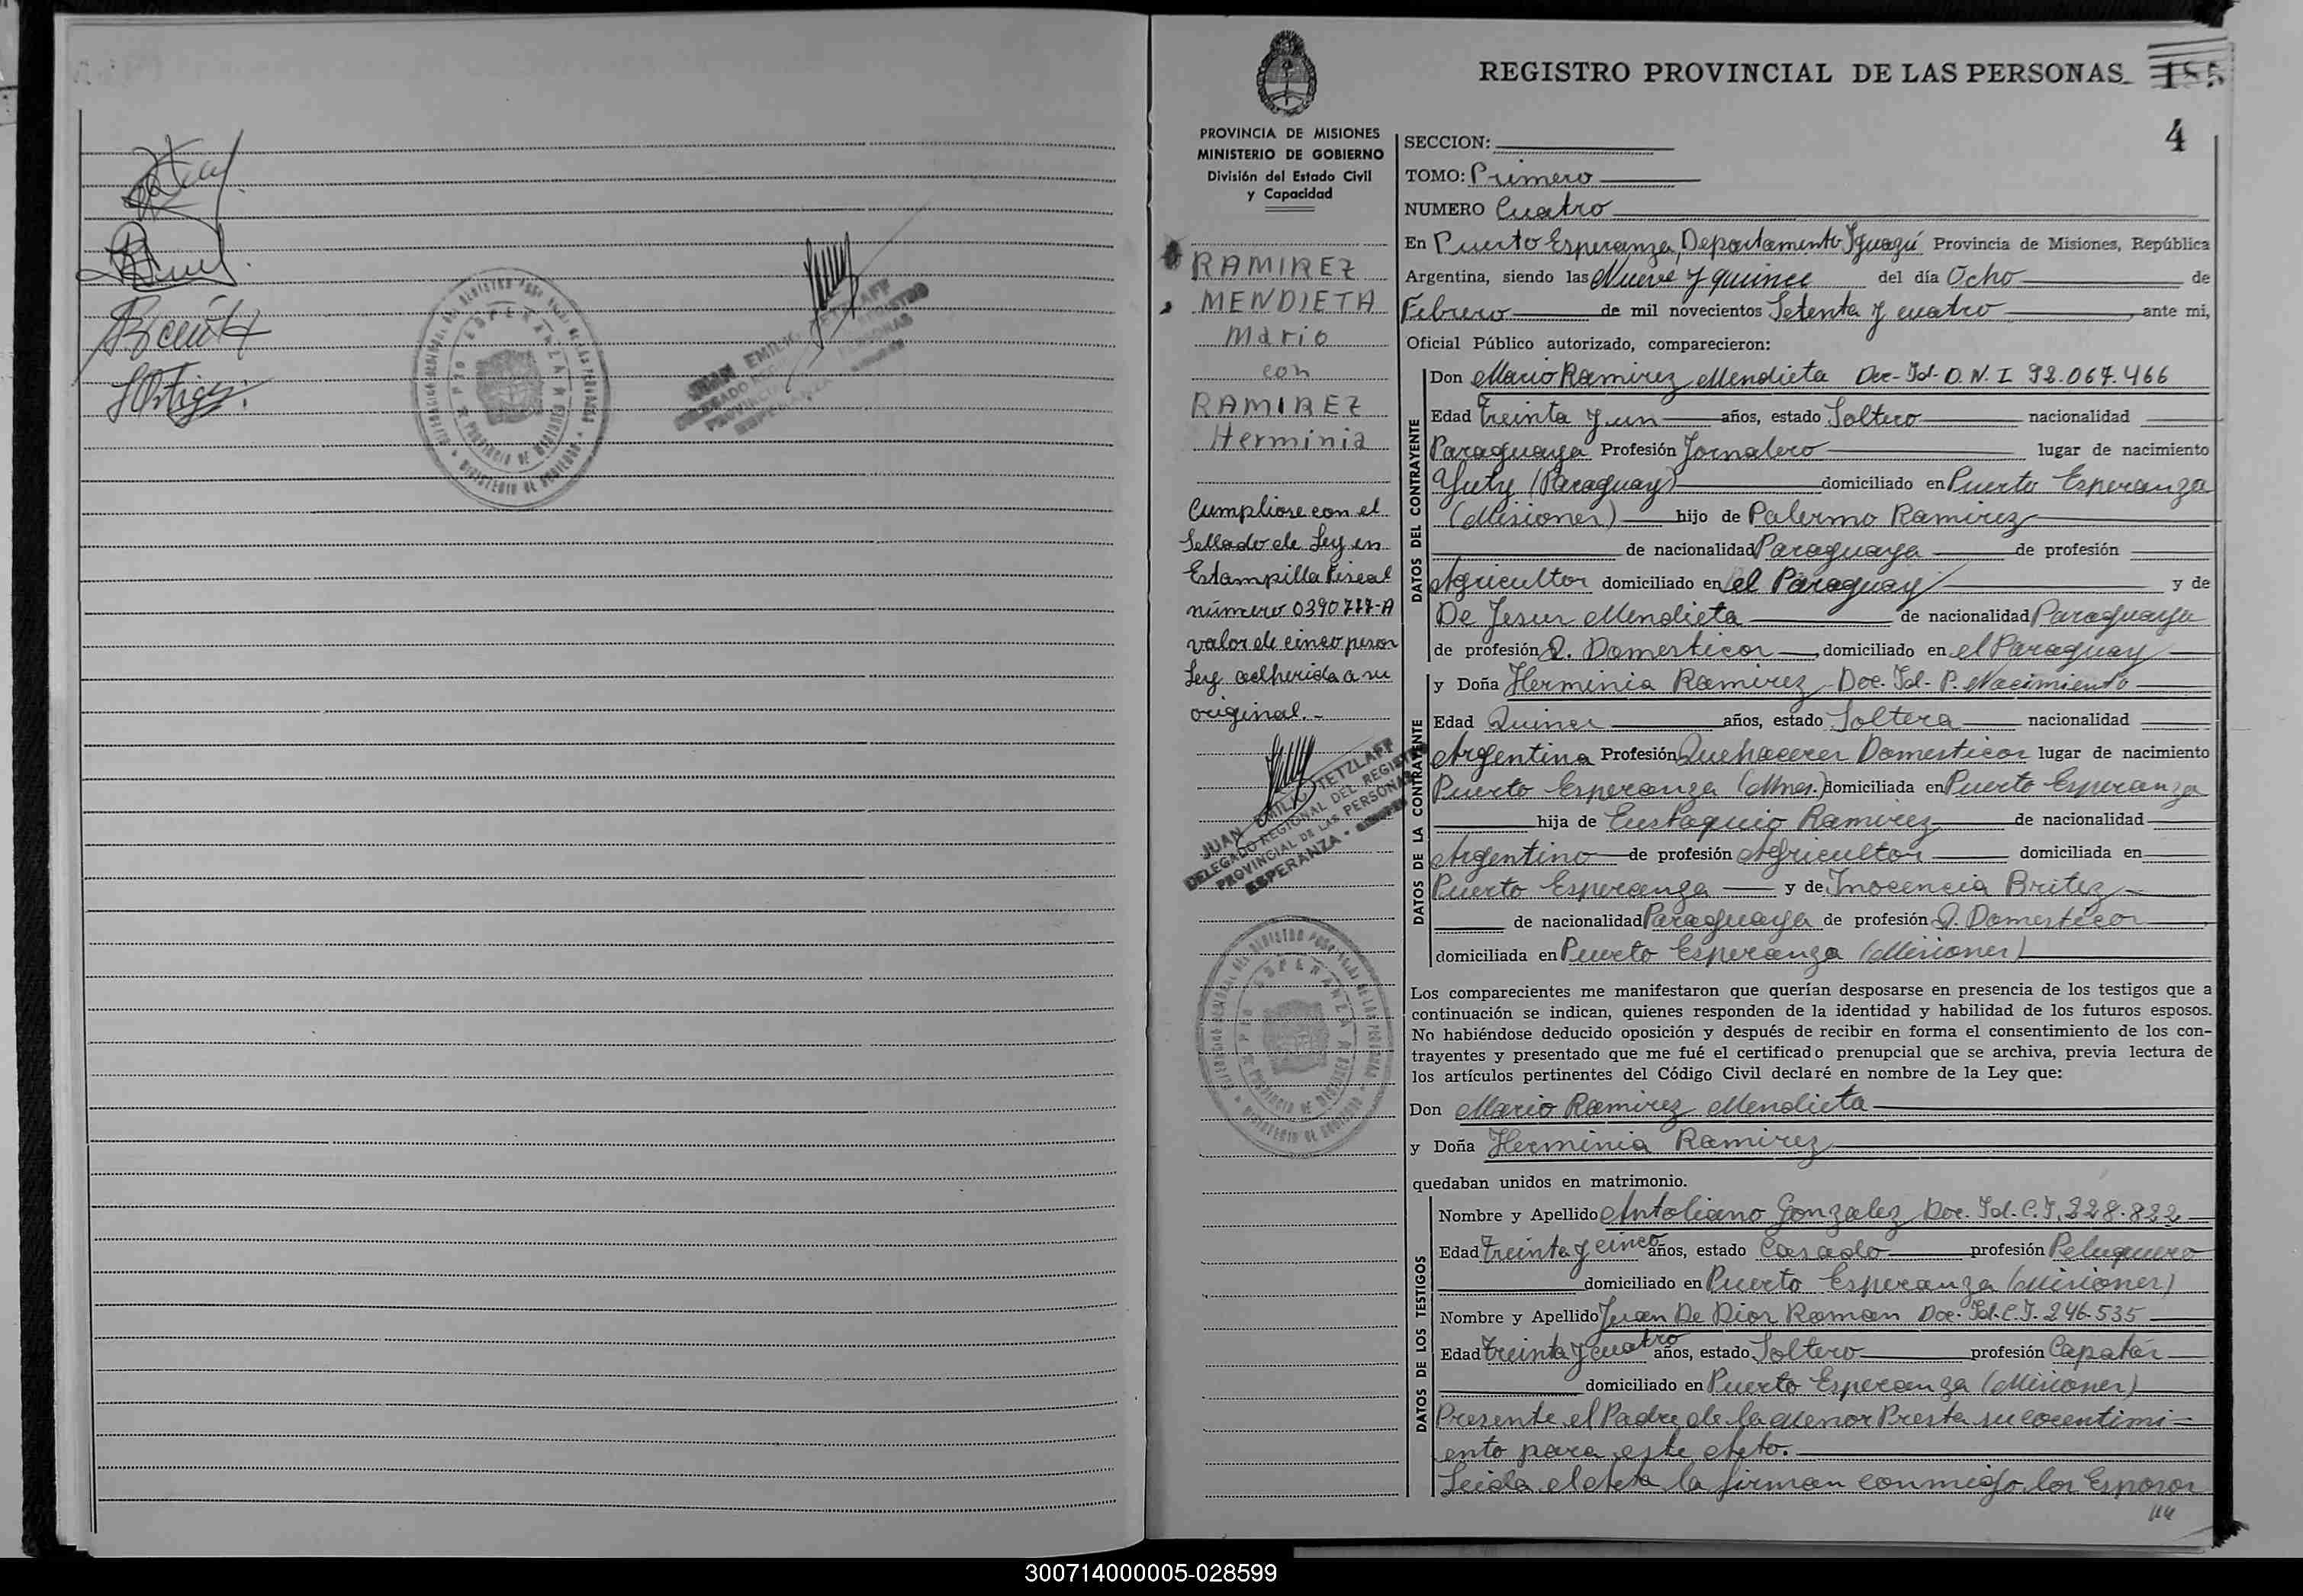 REGISTRO PROVINCIAL DE LAS PERSONAS
4
PROVINCIA DE MISIONES
MINISTERIO DE GOBIERNO
División del Estado Civil
y Capacidad
RAMIREZ
MENDIETA
Mario
con
RAMIREZ
Herminia
Cumpliose con el
Sellado de Ley en
Estampilla Fiscal
número 0390777-A
valor de cinco pesos
Ley adherida a su
original.-
JUAN EMILIO TETZLAFF
DELEGADO REGIONAL DEL REGISTRO
PROVINCIAL DE LAS PERSONAS
ESPERANZA
SECCION:
TOMO: Primero
NUMERO Cuatro
En Puerto Esperanza, Departamento Iguazú Provincia de Misiones, República
Argentina, siendo las Nueve y quince del día Ocho de
Febrero de mil novecientos Setenta y cuatro ante mi,
Oficial Público autorizado, comparecieron:
DATOS DEL CONTRAYENTE
Don Mario Ramirez Mendieta Doc-Id-D.N.I 92.067.466
Edad Treinta y un años, estado Soltero nacionalidad
Paraguaya Profesión Jornalero lugar de nacimiento
Yuty (Paraguay) domiciliado en Puerto Esperanza
(Misiones) hijo de Palermo Ramirez
de nacionalidad Paraguaya de profesión
Agricultor domiciliado en el Paraguay y de
De Jesus Mendieta de nacionalidad Paraguaya
de profesión Q. Domesticos domiciliado en el Paraguay
DATOS DE LA CONTRAYENTE
y Doña Herminia Ramirez Doc. Id- P. Nacimiento
Edad Quince años, estado Soltera nacionalidad
Argentina Profesión Quehaceres Domesticos lugar de nacimiento
Puerto Esperanza (Mnes.) domiciliada en Puerto Esperanza
hija de Eustaquio Ramirez de nacionalidad
Argentino de profesión Agricultor domiciliada en
Puerto Esperanza y de Inocencia Britez
de nacionalidad Paraguaya de profesión Q. Domesticos
domiciliada en Puerto Esperanza (Misiones)
Los comparecientes me manifestaron que querían desposarse en presencia de los testigos que a
continuación se indican, quienes responden de la identidad y habilidad de los futuros esposos.
No habiéndose deducido oposición y después de recibir en forma el consentimiento de los con-
trayentes y presentado que me fué el certificado prenupcial que se archiva, previa lectura de
los artículos pertinentes del Código Civil declaré en nombre de la Ley que:
Don Mario Ramirez Mendieta
y Doña Herminia Ramirez
quedaban unidos en matrimonio.
DATOS DE LOS TESTIGOS
Nombre y Apellido Antoliano Gonzalez Doc. Id. C.I. 228.822
Edad Treinta y cinco años, estado Casado profesión Peluquero
domiciliado en Puerto Esperanza (Misiones)
Nombre y Apellido Juan De Dios Roman Doc. Id. C.I. 246.535
Edad Treinta y cuatro años, estado Soltero profesión Capatáz
domiciliado en Puerto Esperanza (Misiones)
Presente el Padre de la Menor Presta su cocentimi-
ento para este Acto.
Leida el Acta la firman conmigo los Esposos
300714000005-028599